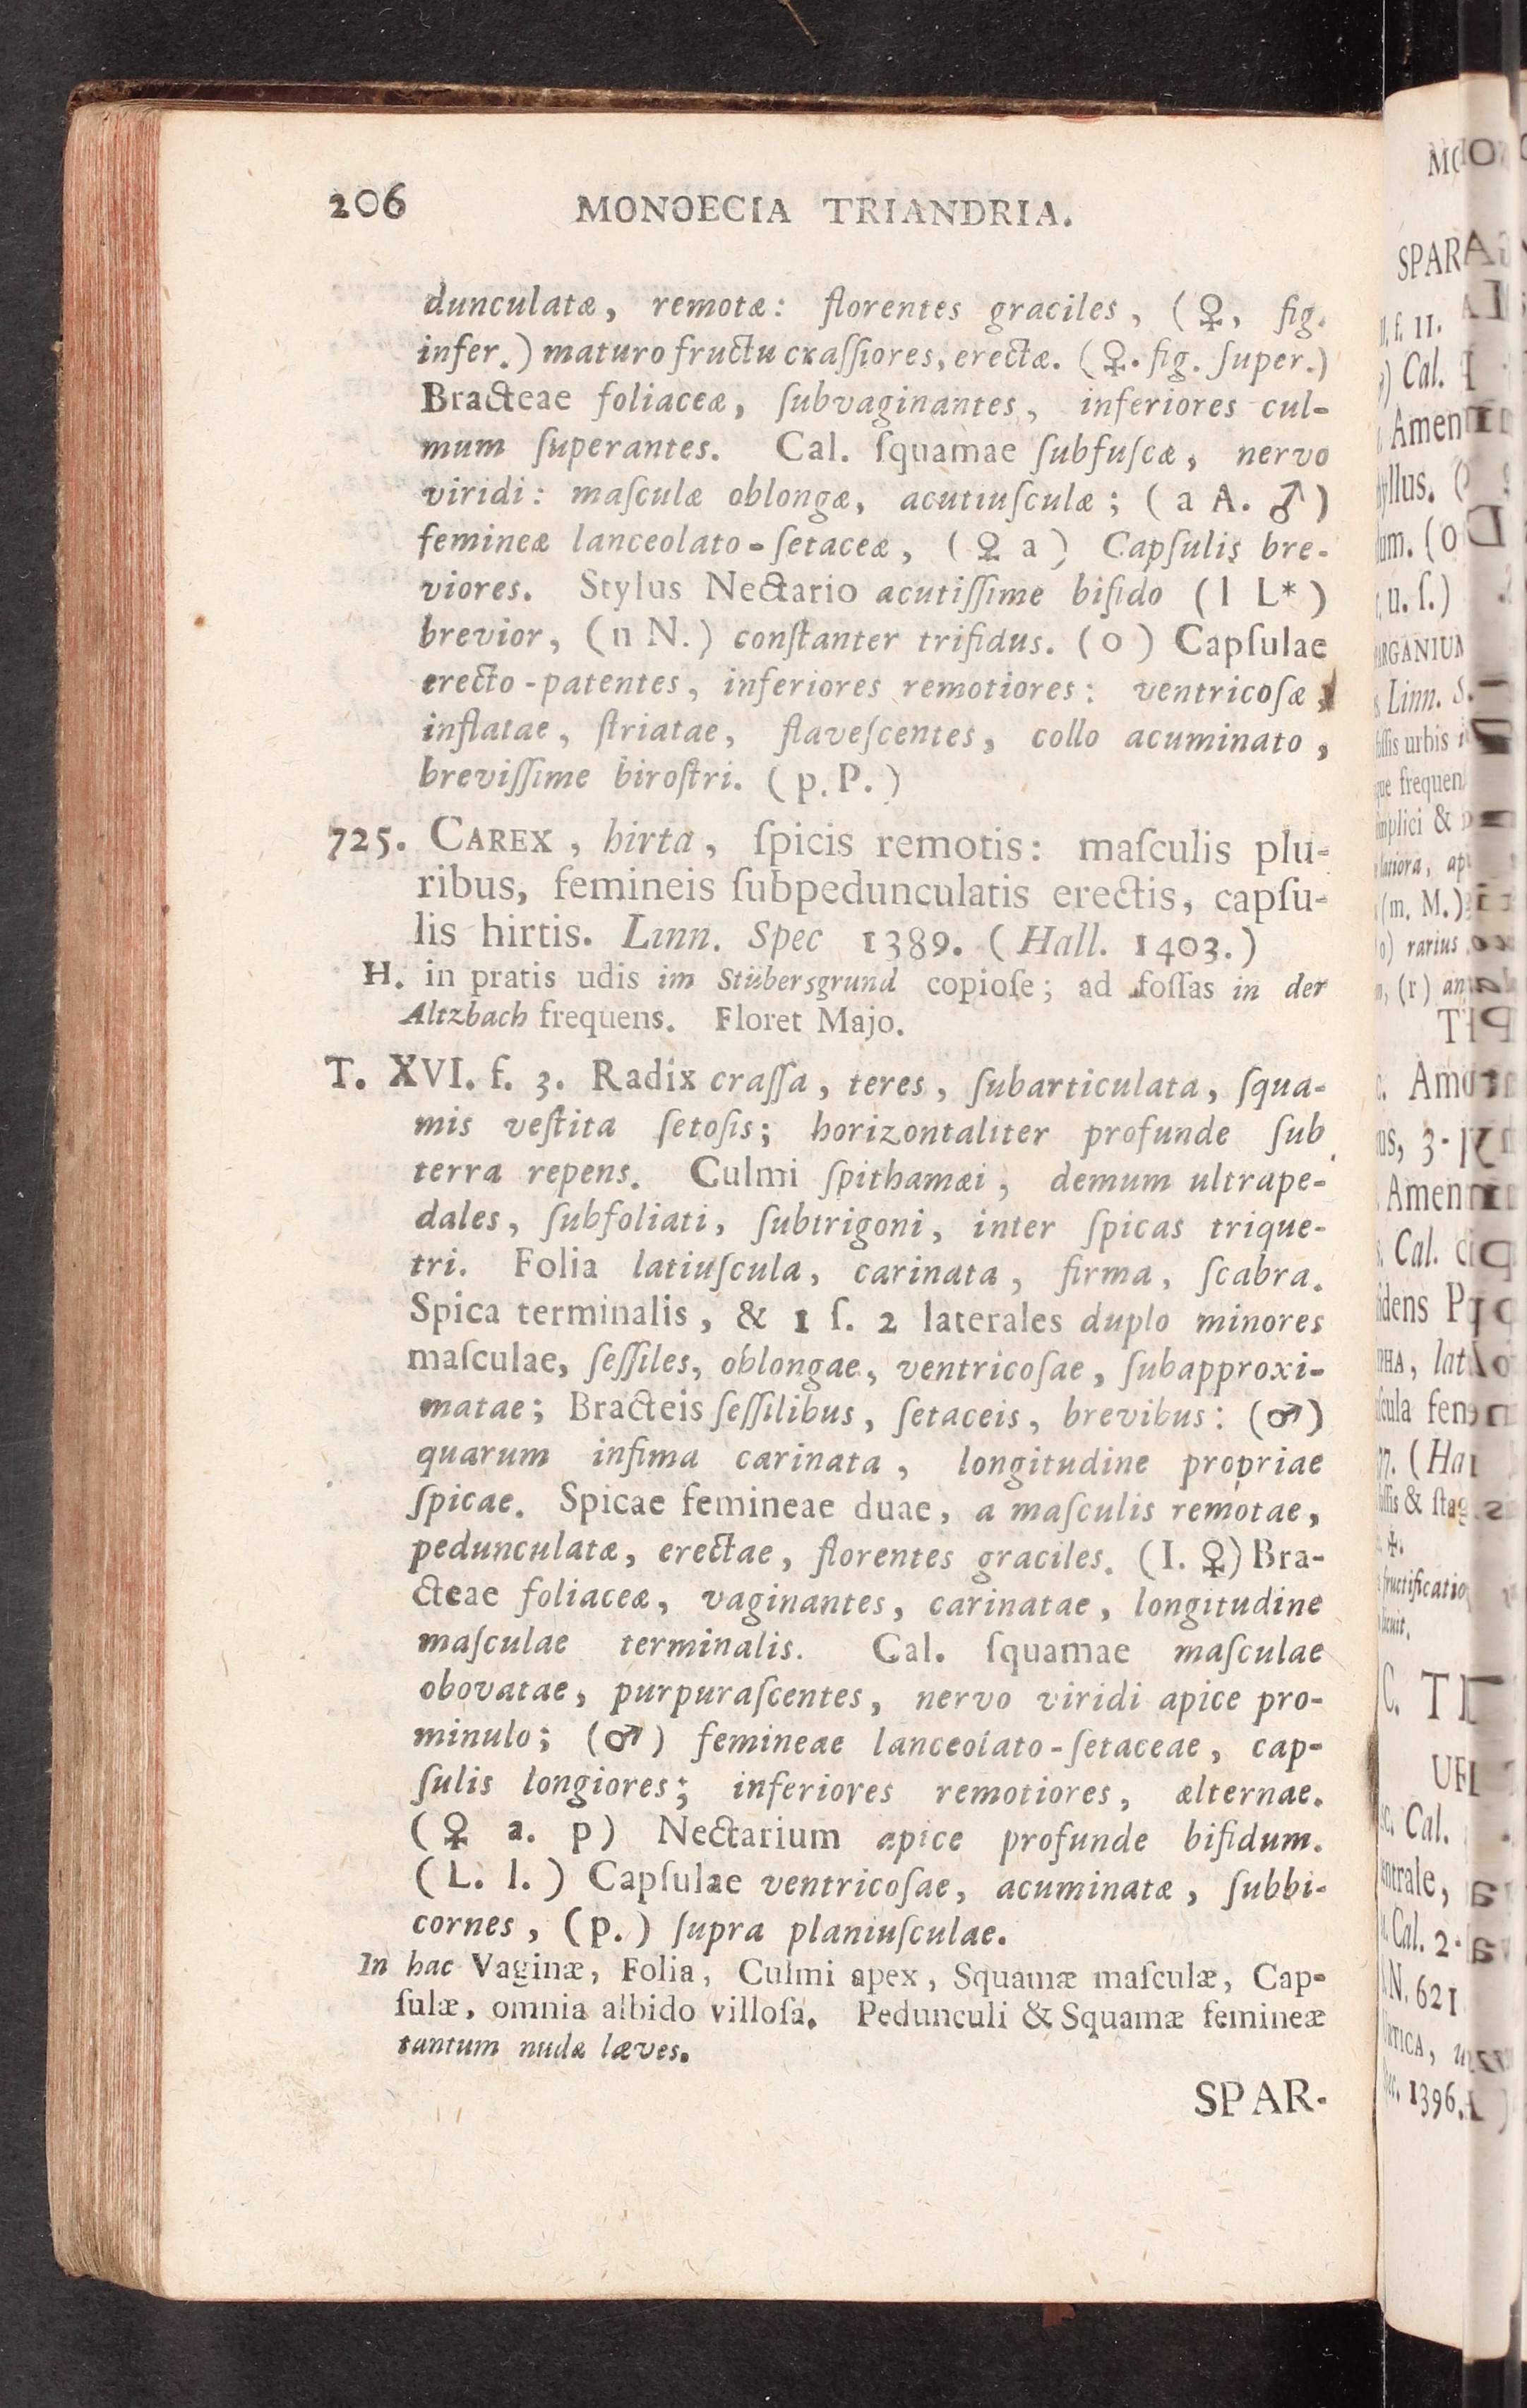 206 MONOECIA TRIANDRIA.
dunculatæ, remotæ: florentes graciles, (♀, fig.
infer.) maturo fructu craſſiores, erectæ. (♀. fig. ſuper.)
Bracteae foliaceæ, ſubvaginantes, inferiores cul-
mum ſuperantes. Cal. ſquamae ſubfuſcæ, nervo
viridi: maſculæ oblongæ, acutiuſculæ; (a A. ♂)
femineæ lanceolato-ſetaceæ, (♀ a) Capſulis bre-
viores. Stylus Nectario acutiſſime bifido (l L*)
brevior, (n N.) conſtanter trifidus. (o) Capſulae
erecto-patentes, inferiores remotiores: ventricoſæ,
inflatae, ſtriatae, flaveſcentes, collo acuminato,
breviſſime biroſtri. (p. P.)
725. CAREX, hirta, ſpicis remotis: maſculis plu-
ribus, femineis ſubpedunculatis erectis, capſu-
lis hirtis. Linn. Spec 1389. (Hall. 1403.)
H. in pratis udis im Stübersgrund copioſe; ad foſſas in der
Altzbach frequens. Floret Majo.
T. XVI. f. 3. Radix craſſa, teres, ſubarticulata, ſqua-
mis veſtita ſetoſis; horizontaliter profunde ſub
terra repens. Culmi ſpithamæi, demum ultrape-
dales, ſubfoliati, ſubtrigoni, inter ſpicas trique-
tri. Folia latiuſcula, carinata, firma, ſcabra.
Spica terminalis, & 1 ſ. 2 laterales duplo minores
maſculae, ſeſſiles, oblongae, ventricoſae, ſubapproxi-
matae; Bracteis ſeſſilibus, ſetaceis, brevibus: (♂)
quarum infima carinata, longitudine propriae
ſpicae. Spicae femineae duae, a maſculis remotae,
pedunculatæ, erectae, florentes graciles. (I. ♀) Bra-
cteae foliaceæ, vaginantes, carinatae, longitudine
maſculae terminalis. Cal. ſquamae maſculae
obovatae, purpuraſcentes, nervo viridi apice pro-
minulo; (♂) femineae lanceolato-ſetaceae, cap-
ſulis longiores; inferiores remotiores, alternae.
(♀ a. p) Nectarium apice profunde bifidum.
(L. l.) Capſulae ventricoſae, acuminatæ, ſubbi-
cornes, (p.) ſupra planiuſculae.
In hac Vaginæ, Folia, Culmi apex, Squamæ maſculæ, Cap-
ſulæ, omnia albido villoſa. Pedunculi & Squamæ femineæ
tantum nudæ læves.
SPAR-